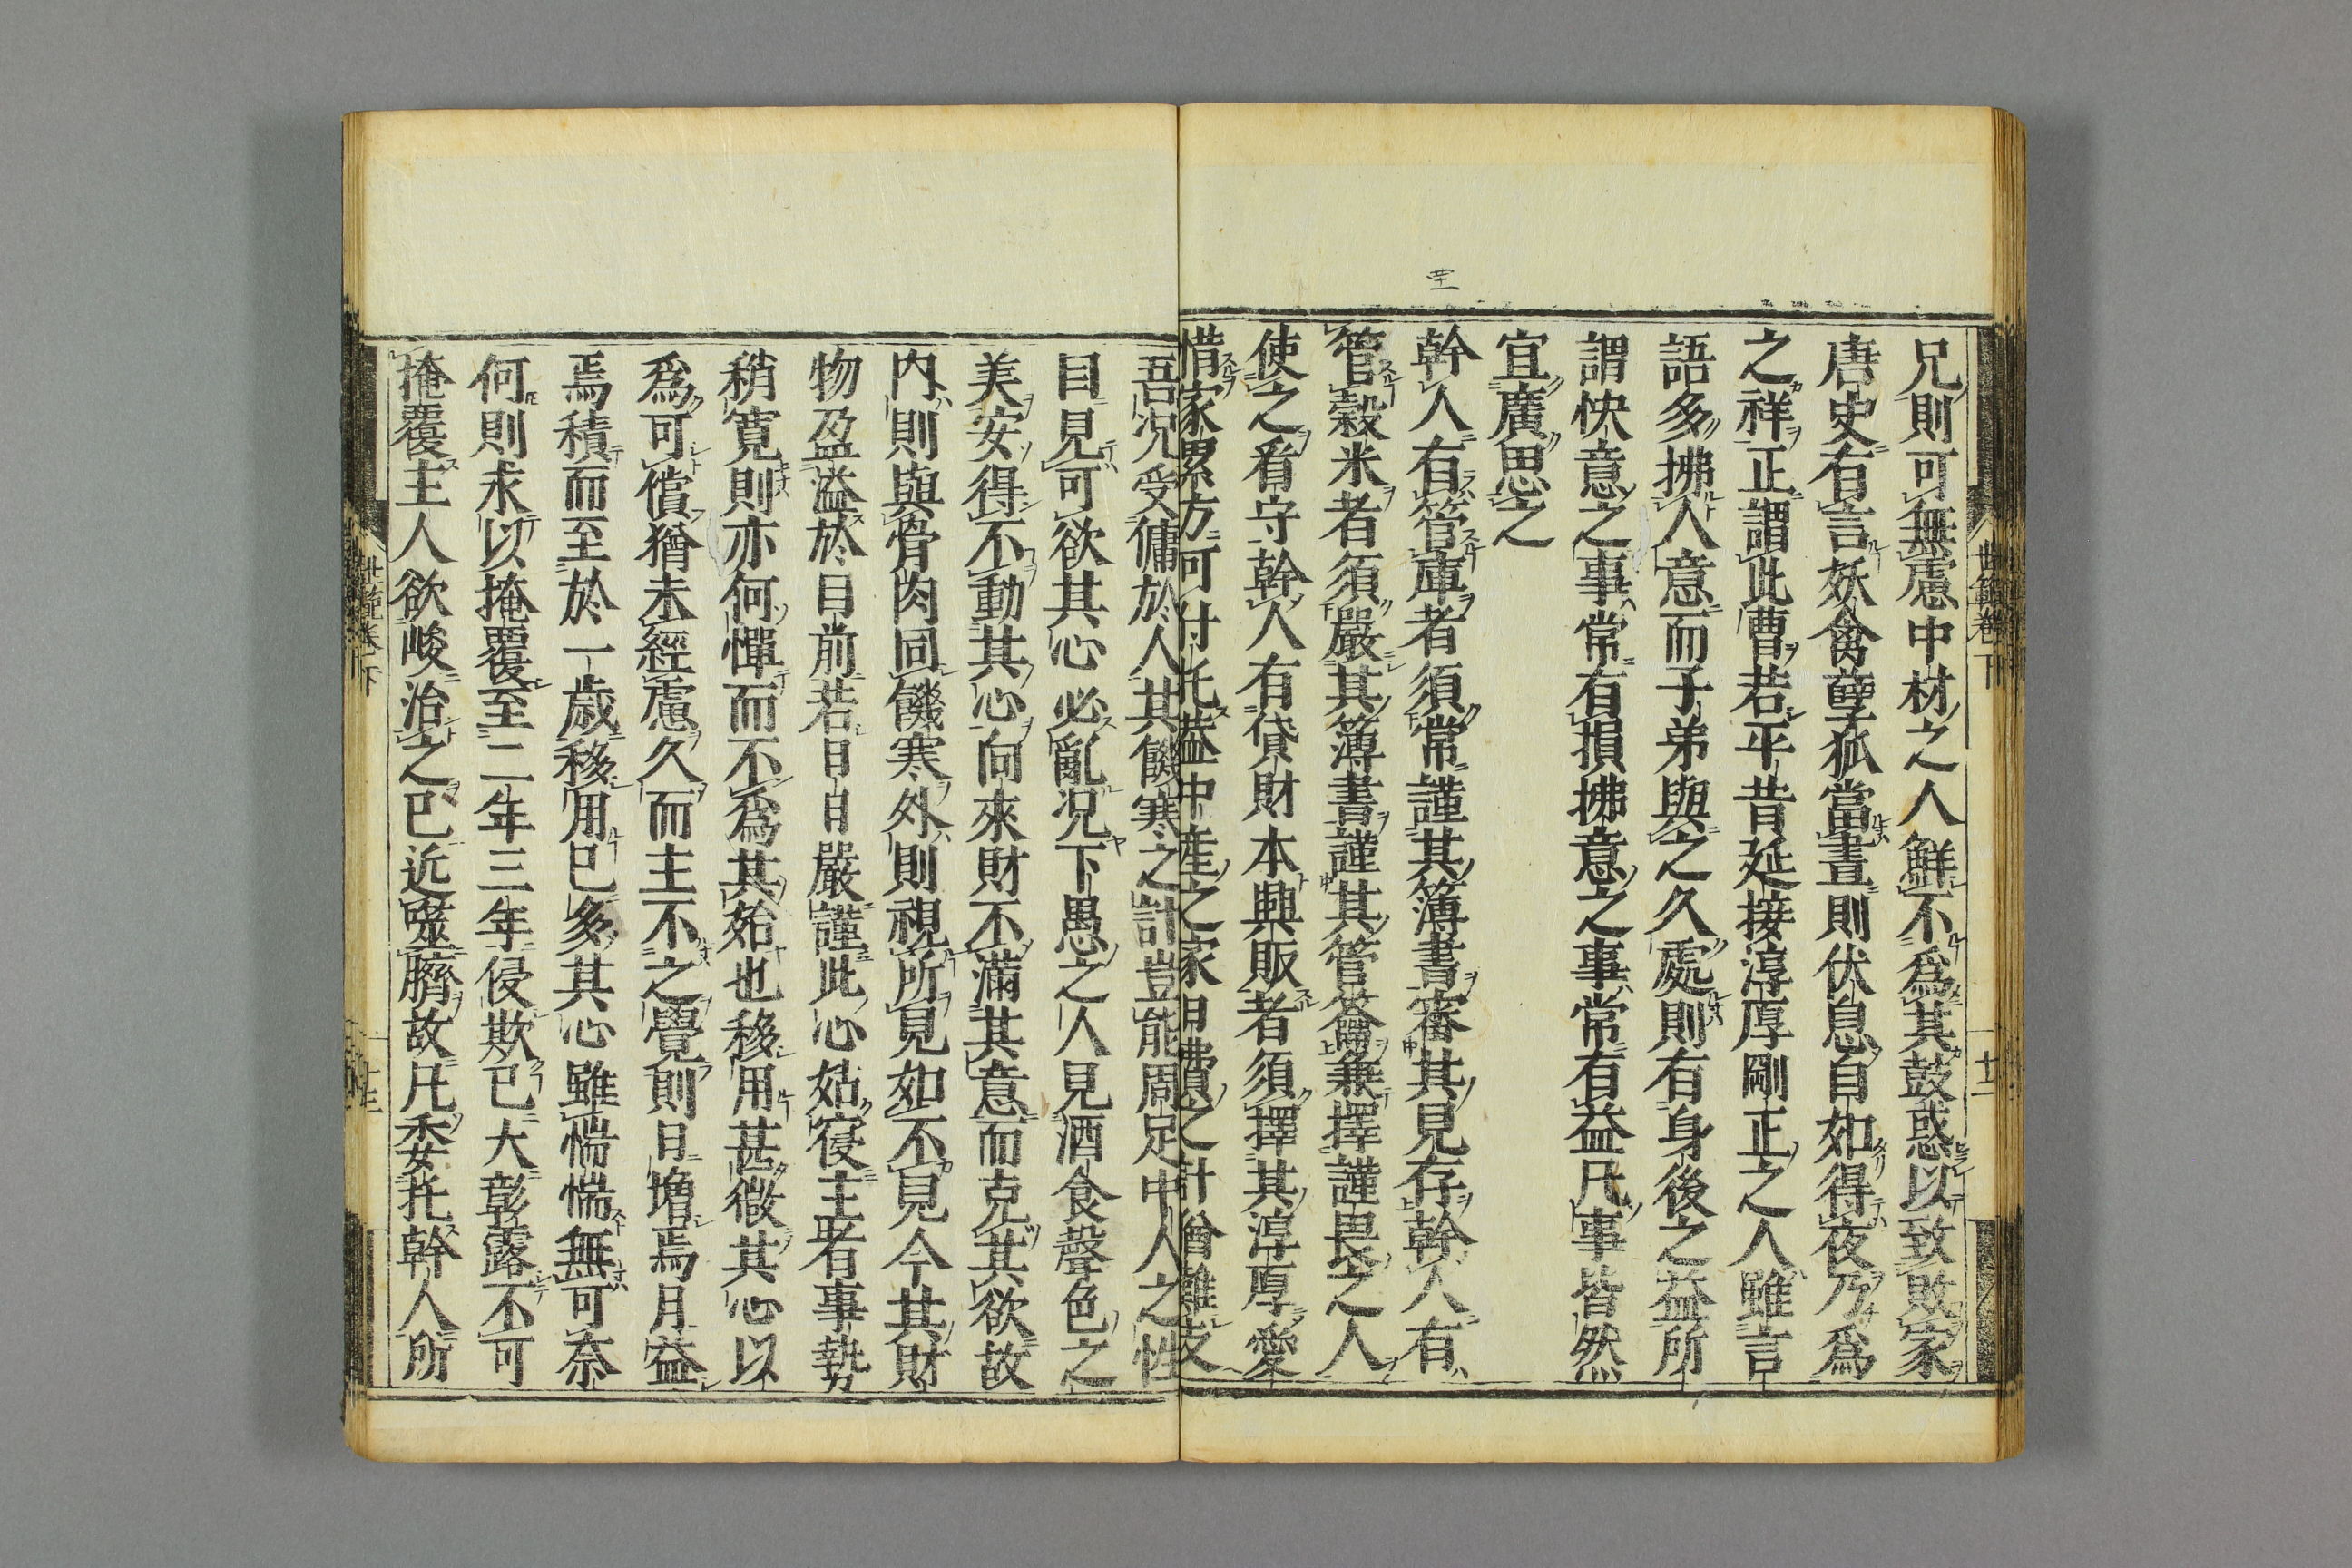 兄則可無慮中材之人鮮不爲其鼓惑以致敗家
唐史有言妖禽孽狐當晝則伏息自如得夜乃爲
之祥正謂此曹若平昔延接淳厚剛正之人雖言
語多拂人意而子弟與之久處則有身後之益所
謂快意之事常有損拂意之事常有益凡事皆然
宜廣思之
幹人有管庫者須常謹其簿書審其見存幹人有
管穀米者須嚴其簿書謹其管籥兼擇謹畏之人
使之看守幹人有貸財本興販者須擇其淳厚愛
惜家累方可付托葢中産之家日費之計猶難支
吾況受傭於人其饑寒之計豈能周足中人之性
目見可欲其心必亂況下愚之人見酒食聲色之
美安得不動其心向來財不滿其意而克其欲故
内則與骨肉同饑寒外則視所見如不見今其財
物盈溢於目前若日日嚴謹此心姑寝主者事勢
稍寛則亦何憚而不爲其始也移用甚微其心以
爲可償猶未經慮久而主不之覺則日増焉月益
焉積而至於一歳移用已多其心雖惴惴無可奈
何則求以掩覆至二年三年侵欺已大彰露不可
掩覆主人欲峻治之已近噬臍故凡委托幹人所
世範卷下
廿二
世範卷下